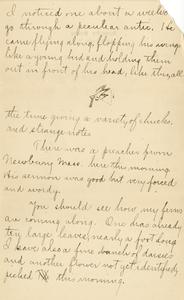 I noticed one about a week
go through a peculiar antic. He
came flying along, flopping his wings
like a young bird and holding them
out in front of his head, like this, all
the time giving a variety of chucks,
and strange notes
There was a preacher from
Newbury Mass. here this morning
His sermon was good but very forced
and wordy.
You should see how my ferns
are coming along. One has already
ten large leaves, nearly a foot long
I have also a fine bunch of daisies
and another flower not yet identified,
picked this morning.